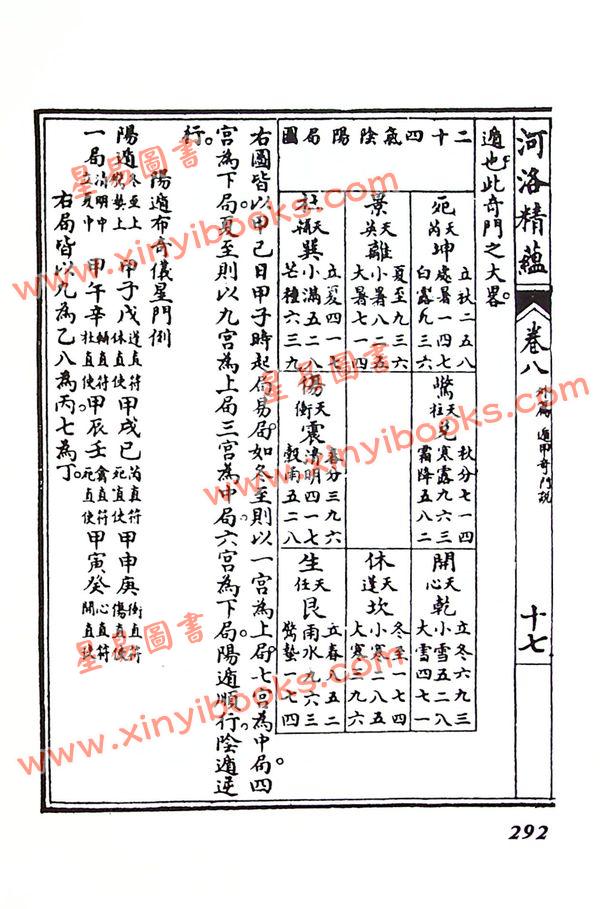 河洛精蘊 卷八 外篇 遁甲奇門說 十七
遁也此奇門之大畧。
二十四氣陰陽局圖
死 天芮 坤
立秋二五八
處暑一四七
白露九三六
驚 天柱 兌
秋分七一四
寒露九六三
霜降五八二
開 天心 乾
立冬六九三
小雪五二八
大雪四七一
景 天英 離
夏至九三六
小暑八二五
大暑七一四
休 天蓬 坎
冬至一七四
小寒二八五
大寒三九六
杜 天輔 巽
立夏四一七
小滿五二八
芒種六三九
傷 天衝 震
春分三九六
清明四一七
穀雨五二八
生 天任 艮
立春八五二
雨水九六三
驚蟄一七四
右圖皆以甲己日甲子時起局易局。如冬至則以一宮為上局。七宮為中局四
宮為下局。夏至則以九宮為上局三宮為中局。六宮為下局。陽遁順行。陰遁逆
行。
陽遁布奇儀星門例
陽遁 冬至上 驚蟄上 甲子戊 蓬直符 休直使 甲戌己 芮直符 死直使 甲申庚 衝直符 傷直使
一局 清明中 立夏中 甲午辛 輔直符 杜直使 甲辰壬 禽直符 死直使 甲寅癸 心直符 開直使
右局皆以九為乙八為丙七為丁。
292
星易圖書
www.xinyibooks.com
星易圖書
www.xinyibooks.com
星易圖書
www.xinyibooks.com
星易圖書
www.xinyibooks.com
星易圖書
www.xinyibooks.com